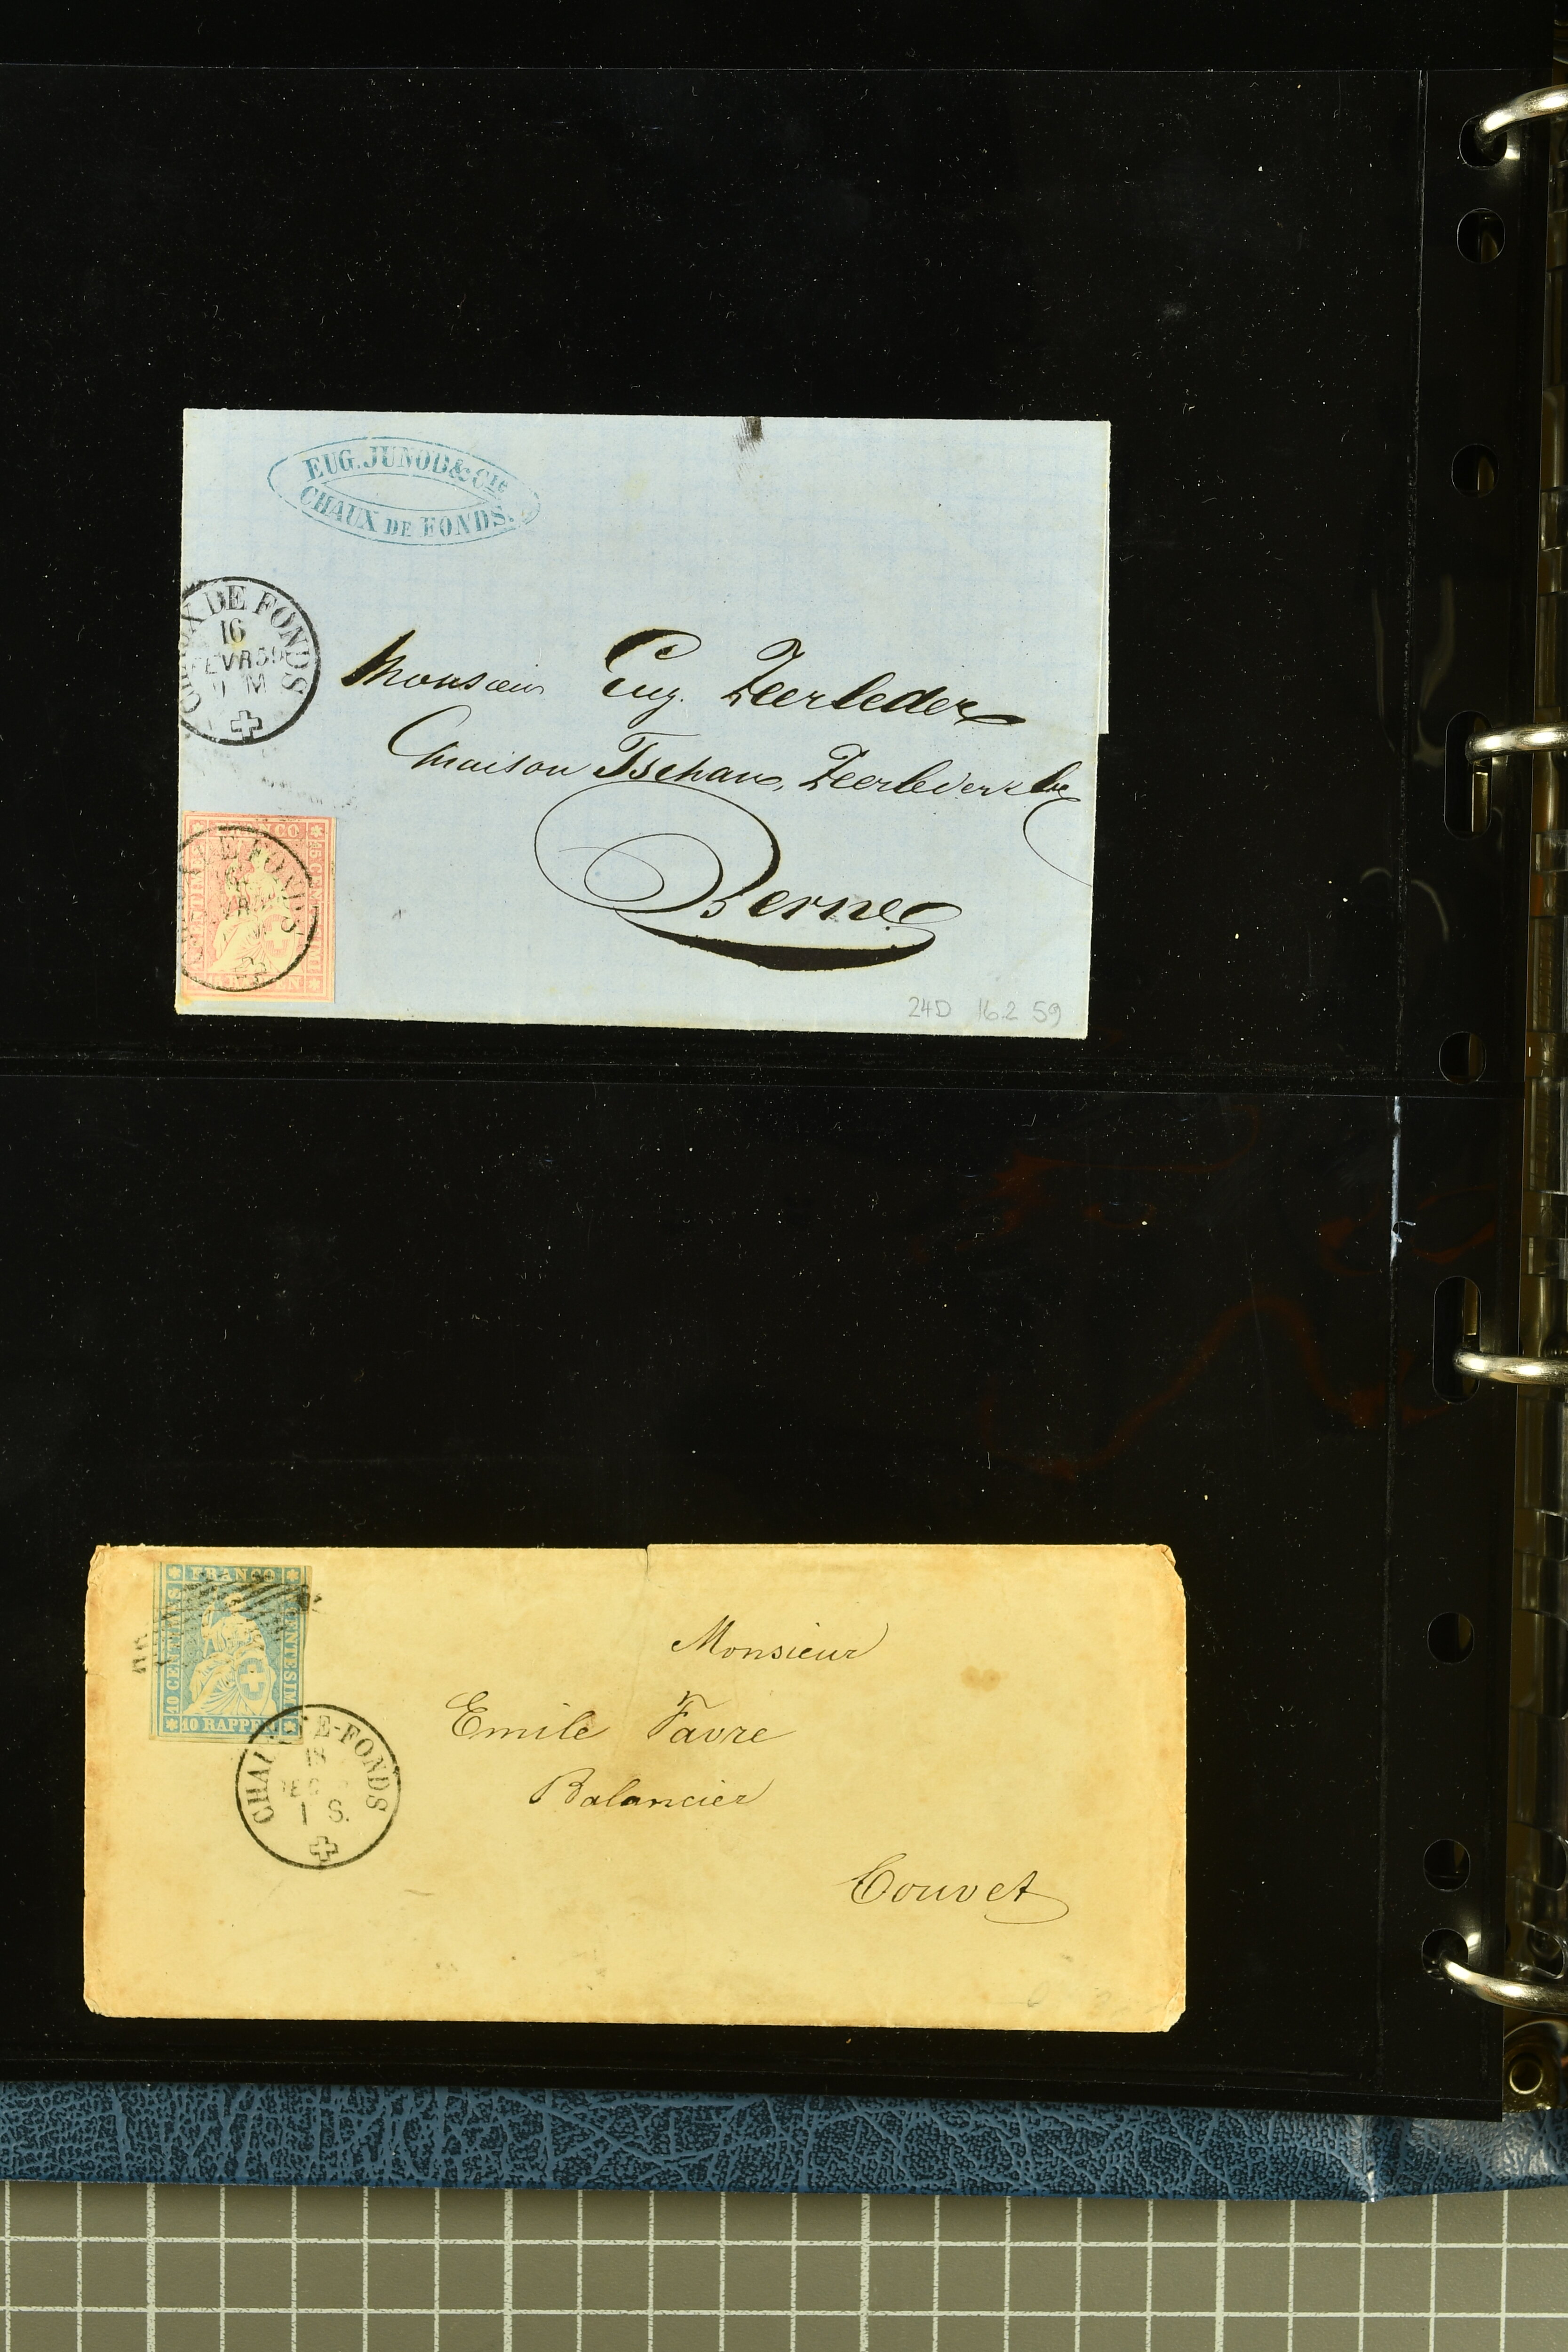 EUG. JUNOD & CIE
CHAUX DE FONDS.
CHAUX DE FONDS
16
FEVR 59
M
Monsieur Eug. Zeerleder
Maison Tschann, Zeerleder & Cie
Berne
FRANCO
DE FONDS
24D 16.2 59
FRANCO
10 CENTIMES
CENTESIMI
10 RAPPEN
CHAUX-DE-FONDS
18
DEC
1 S.
Monsieur
Emile Favre
Balancier
Couvet